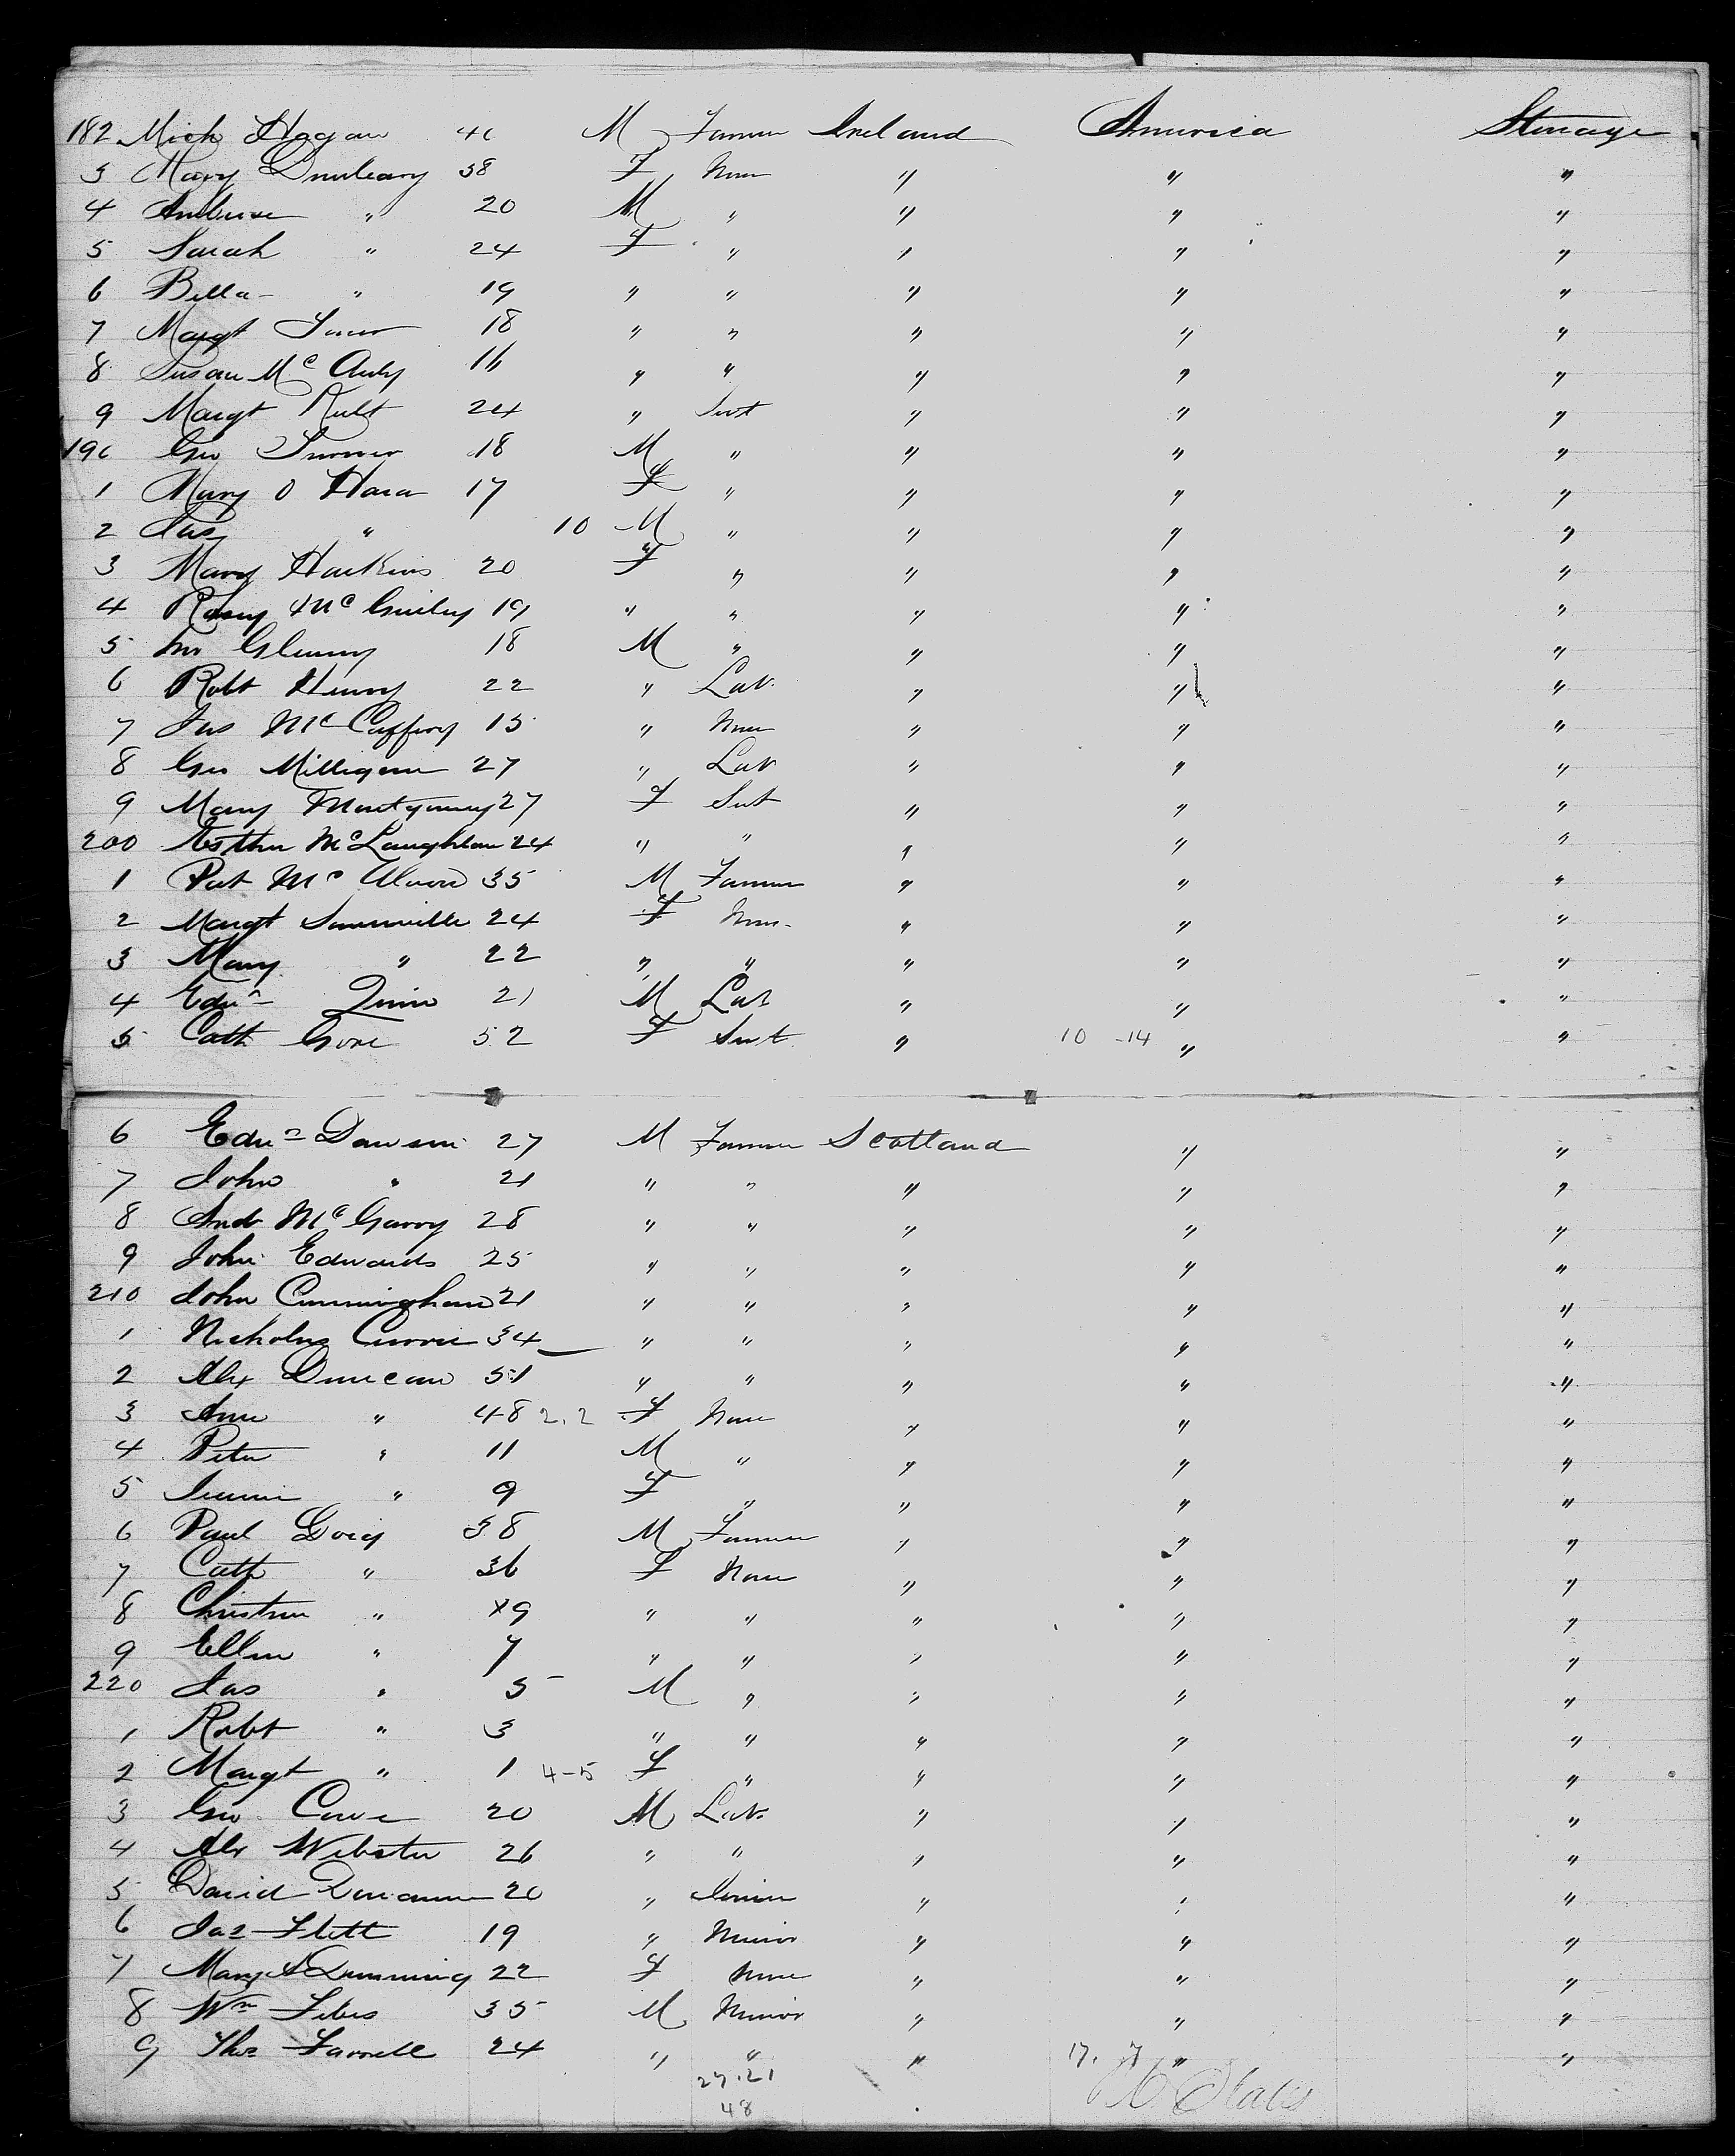 182 Mich Hagan 40 M Farmer Ireland America Steerage
3 Mary Dunleavy 38 F None " " "
4 Ambrose " 20 M " " " "
5 Sarah " 24 F " " " "
6 Bella " 19 " " " " "
7 Margt 18 " " " " "
8 Susan McAuly 16 " " " " "
9 Margt 24 " Servt " " "
190 Geo Turner 18 M " " " "
1 Mary O Hara 17 F " " " "
2 Jas " 10 M " " " "
3 Mary Harkins 20 F " " " "
4 Rosey 19 " " " " "
5 Jno Glenny 18 M " " " "
6 Robt Henry 22 " Lab. " " "
7 Jas McCaffery 15 " None " " "
8 Geo Milligan 27 " Lab " " "
9 Mary Montgomery 27 F Servt " " "
200 Esther McLaughlan 24 " " " " "
1 Pat Mc 35 M Farmer " " "
2 Margt Sommerville 24 F None " " "
3 Mary " 22 " " " " "
4 Edwd Quinn 21 M Lab " " "
5 Cath Gore 52 F Servt " 10 - 14 " "
6 Edwd Dawson 27 M Farmer Scotland " "
7 John " 21 " " " " "
8 And McGarry 28 " " " " "
9 John Edwards 25 " " " " "
210 John Cunningham 21 " " " " "
1 Nicholas Currie 34 " " " " "
2 Alex Duncan 51 " " " " "
3 Ann " 48 2.2 F None " " "
4 Peter " 11 M " " " "
5 Jeannie " 9 F " " " "
6 Paul Doig 38 M Farmer " " "
7 Cath " 36 F None " " "
8 Christine " x9 " " " " "
9 Ellen " 7 " " " " "
220 Jas " 5 M " " " "
1 Robt " 3 " " " " "
2 Margt " 1 4-5 F " " " "
3 Geo 20 M Lab. " " "
4 Alex Webster 26 " " " " "
5 David 20 " " " "
6 Jas Flett 19 " Minor " " "
7 Mary A Dunning 22 F None " " "
8 Wm 35 M Minor " " "
9 Thos Farrell 24 " " " 17. 7 " "
27.21
48